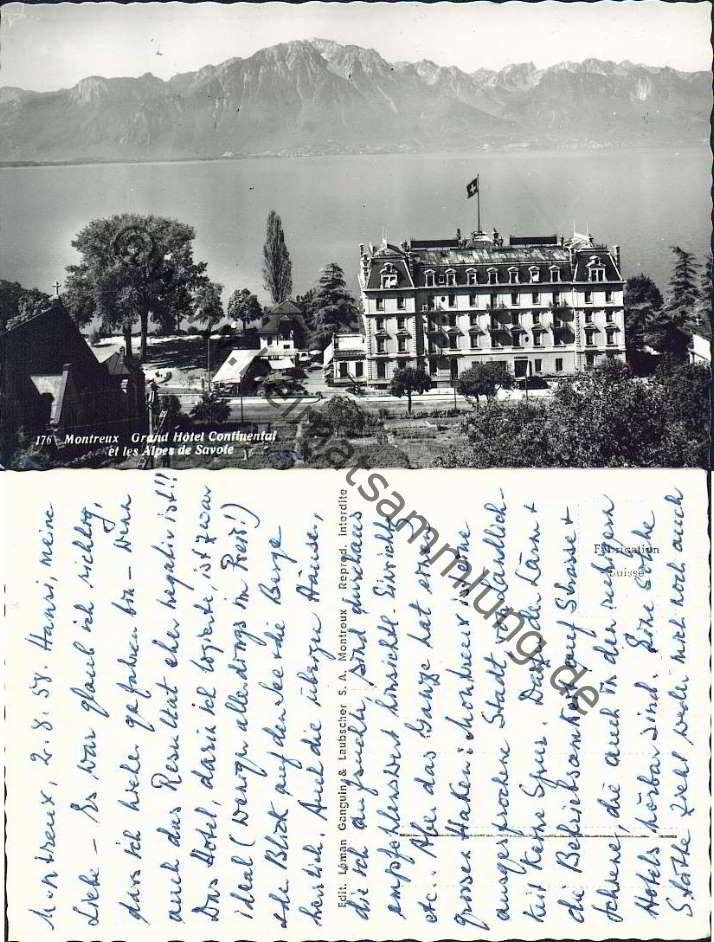 176 Montreux Grand Hôtel Continental
et les Alpes de Savoie
Montreux, 2.8.58. Hansi, meine
Liebe – Es war glaub ich richtig,
dass ich hieher gefahren bin – denn
auch das Resultat eher negativ ist!!
Das Hotel, darin ich logierte, ist zwar
ideal (weniger allerdings im Preis!)
der Blick auf den See + die Berge
herrlich. Auch die übrigen Häuser,
die ich aufsuchte, sind durchaus
empfehlenswert hinsichtl. Einricht.
etc. Aber das Ganze hat einen
grossen Haken: Montreux ist eine
ausgesprochene Stadt v. Ländlich-
keit keine Spur. Dazu der Lärm +
die Betriebsamkeit auf Strasse +
Schiene, die auch in den ruhigern
Hotels hörbar sind. Eine
Stätte zieht weder mich noch auch
Edit. Löman Ganguin & Laubscher S. A. Montreux / Reprod. interdite
Fabrication
Suisse
heimatsammlung.de